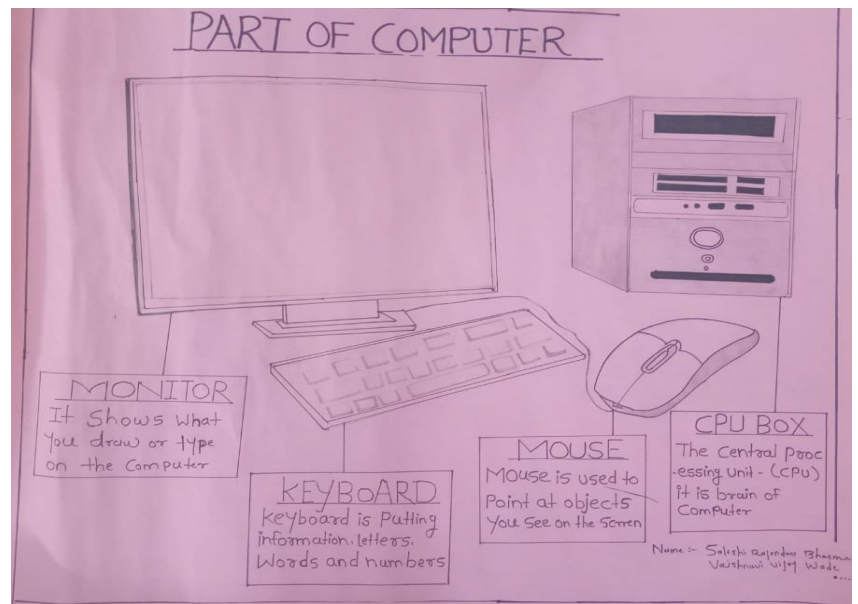 PART OF COMPUTER
MONITOR
It Shows what
You draw or type
on the Computer
KEYBOARD
Keyboard is Putting
information, letters,
Words and numbers
MOUSE
Mouse is used to
Point at objects
You See on the Scrren
CPU BOX
The Central Proc
-essing Unit - (CPU)
it is brain of
Computer
Name :-
Vaishnavi Vijay Wade